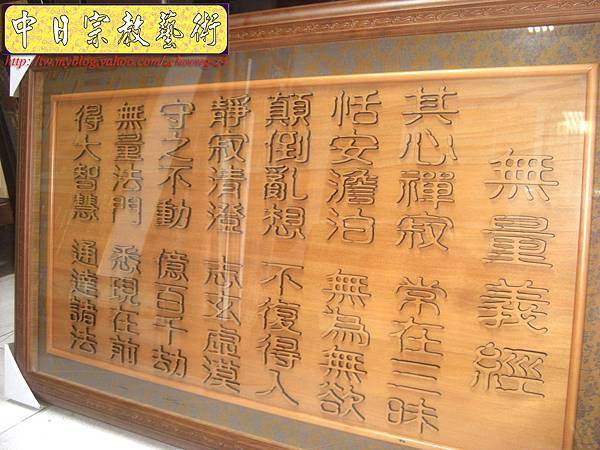 中日宗教藝術
http://tw.myblog.yahoo.com/zchoong-24
無量義經
其心禪寂 常在三昧
恬安澹泊 無為無欲
顛倒亂想 不復得入
靜寂清澄 志玄虛漠
守之不動 億百千劫
無量法門 悉現在前
得大智慧 通達諸法